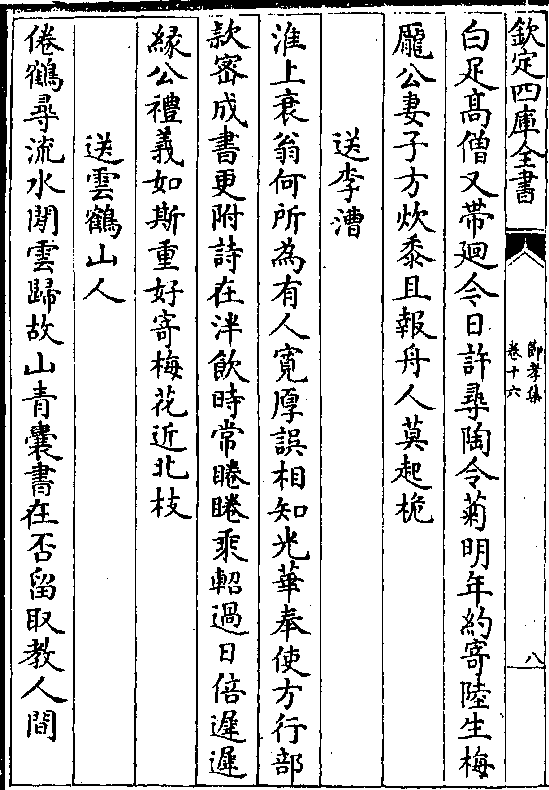 欽定四庫全書
節孝集
卷十六
八
白足髙僧又帶廻今日許尋陶令菊明年約寄陸生梅
龎公妻子方炊黍且報舟人莫起桅
送李漕
淮上衰翁何所為有人寛厚誤相知光華奉使方行部
款宻成書更附詩在泮飲時常睠睠乘軺過日倍遲遲
緣公禮義如斯重好寄梅花近北枝
送雲鶴山人
倦鶴尋流水閒雲歸故山青囊書在否留取教人間